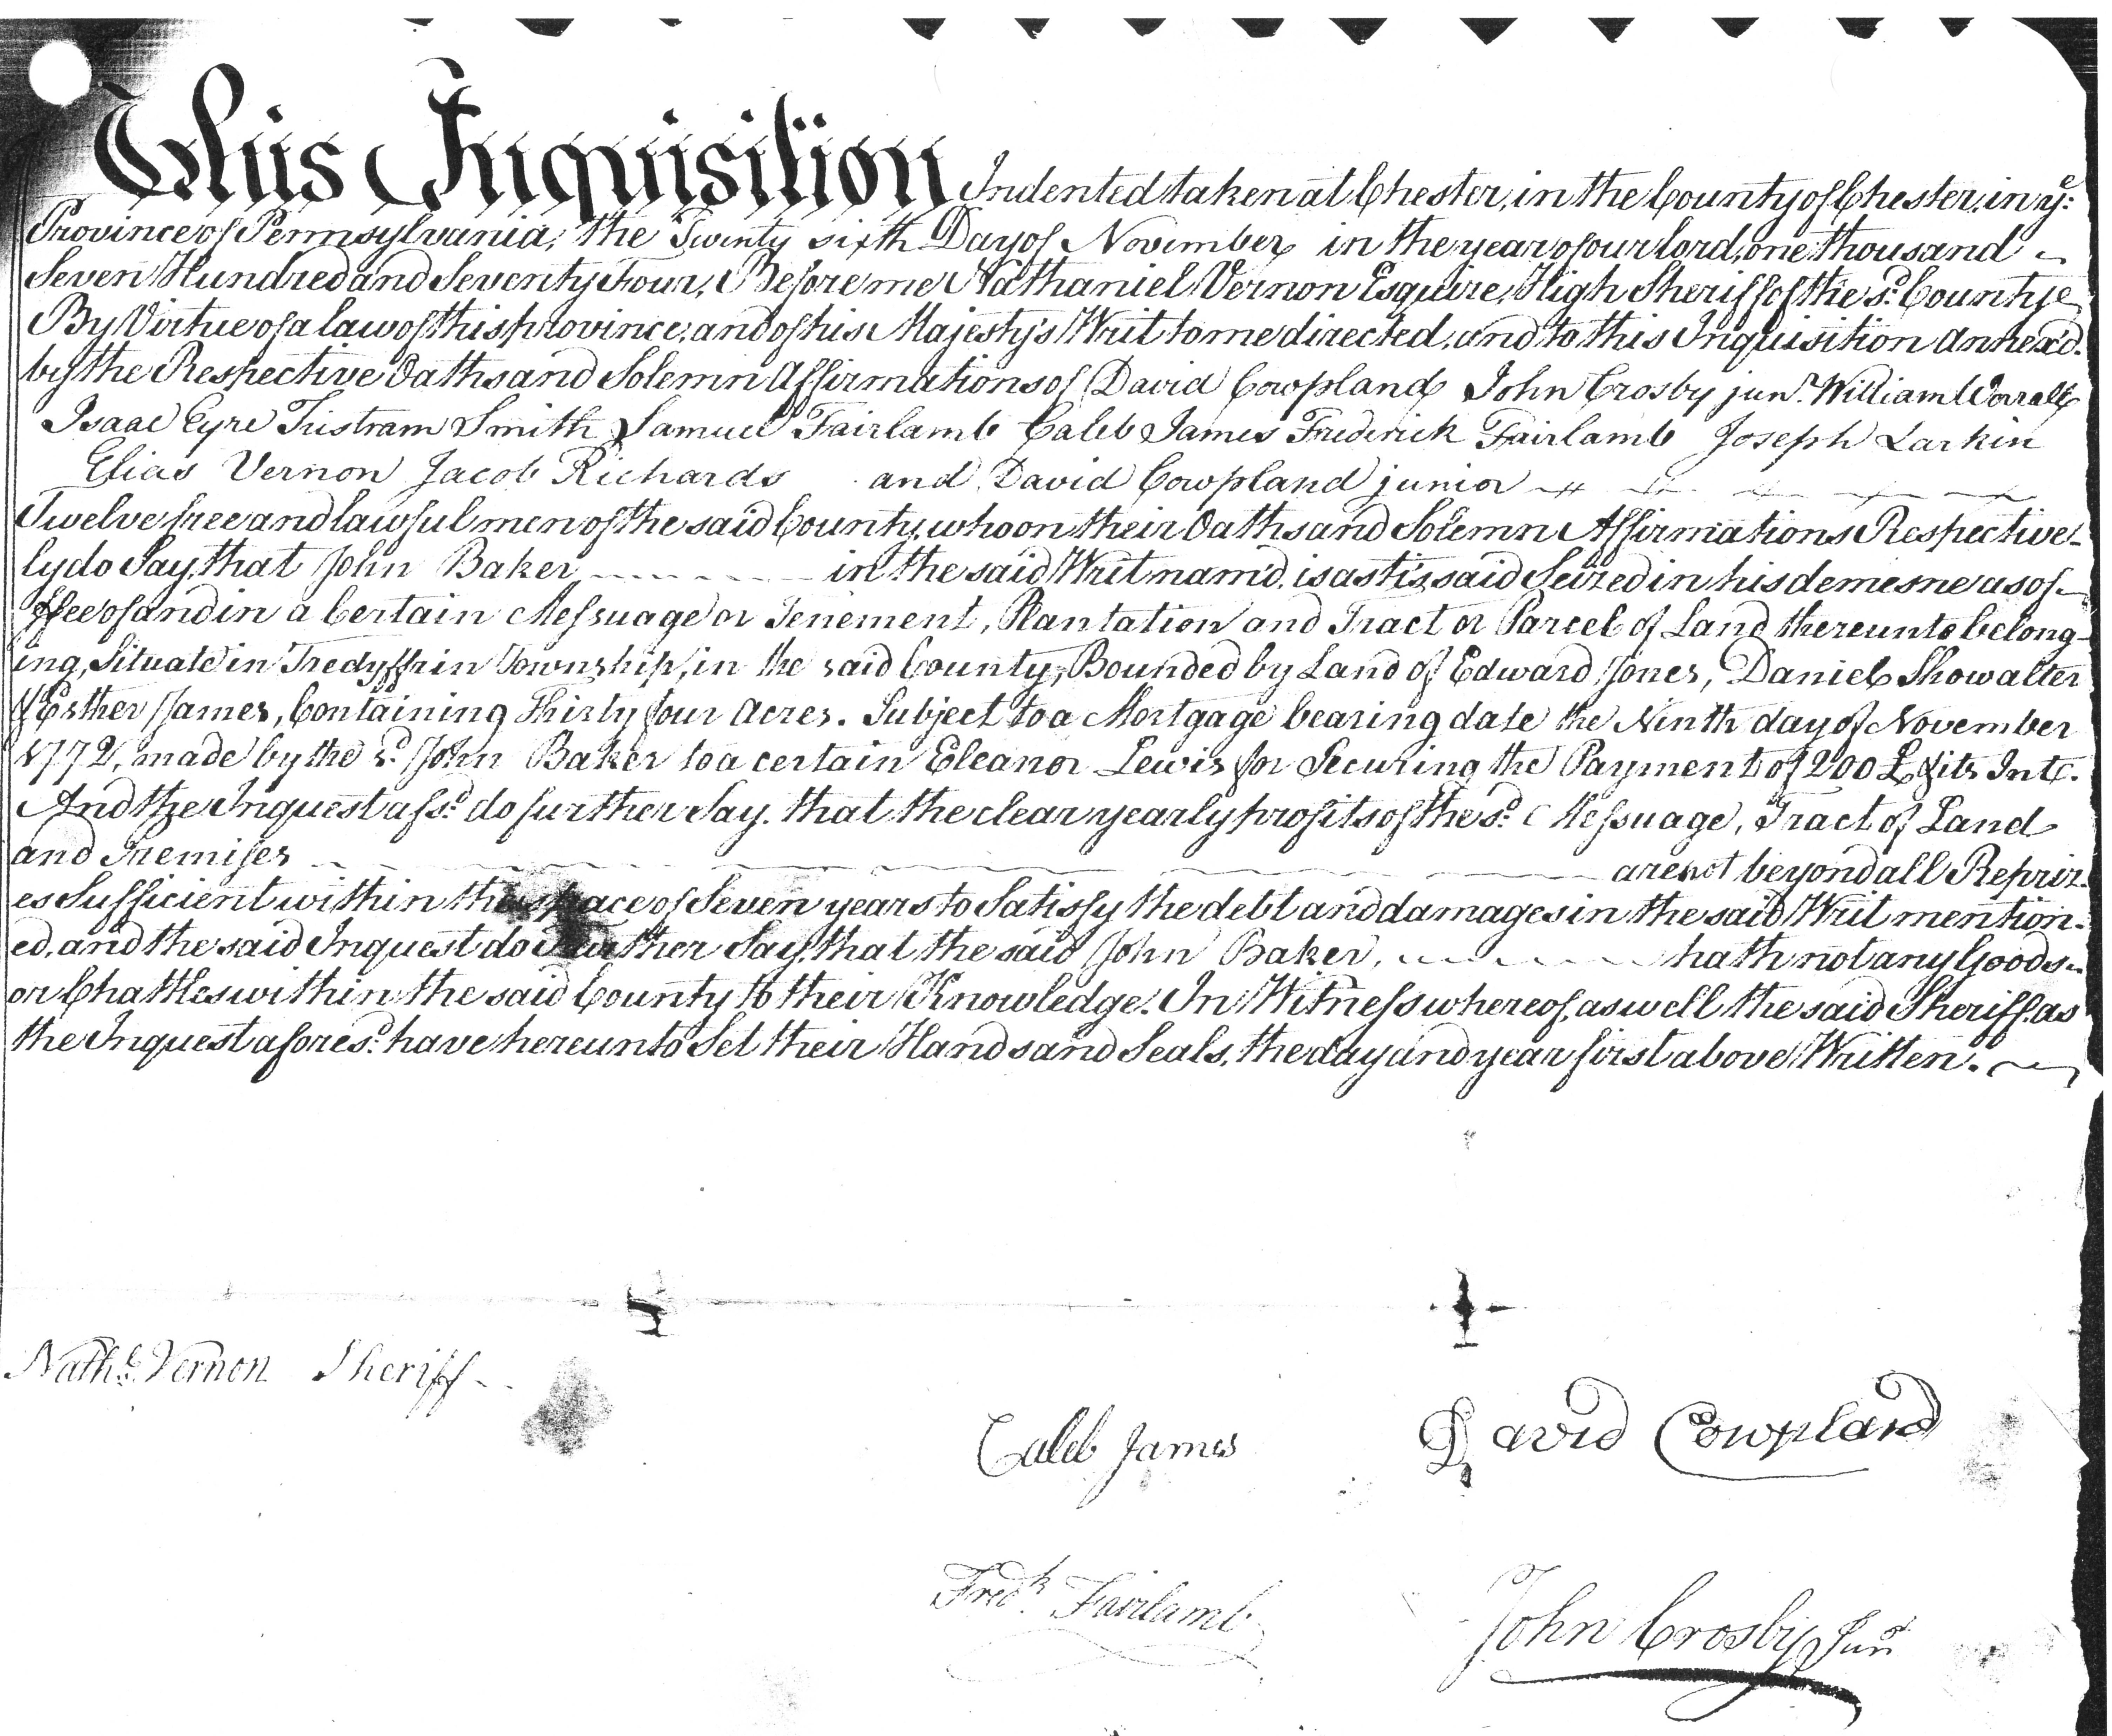 This Inquisition Indented taken at Chester, in the County of Chester, in ye:
Province of Pennsylvania, the Twenty sixth Day of November in the year of our lord, one thousand
Seven Hundred and Seventy Four, Before me Nathaniel Vernon Esquire, High Sheriff of the sd. County
By Virtue of a law of this province, and of his Majesty's Writ to me directed, and to this Inquisition annexd.
by the Respective Oaths and Solemn Affirmations of David Cowpland John Crosby junr. William Worrall
Isaac Eyre Tristram Smith Samuel Fairlamb Caleb James Frederick Fairlamb Joseph Larkin
Elias Vernon Jacob Richards and David Cowpland junior
Twelve free and lawful men of the said County, who on their Oaths and Solemn Affirmations Respective-
ly do Say, that John Baker in the said Writ nam'd, is as tis said Seized in his demesne as of
ffee of and in a Certain Messuage or Tenement, Plantation and Tract or Parcel of Land thereunto belong-
ing, Situate in Tredyffrin Township, in the said County, Bounded by Land of Edward Jones, Daniel Showalter
& Esther James, Containing Thirty four Acres. Subject to a Mortgage bearing date the Ninth day of November
1772, made by the sd. John Baker to a certain Eleanor Lewis for Securing the Payment of 200 £ & its Intt.
And the Inquest afsd. do further Say, that the clear yearly profits of the sd. Messuage, Tract of Land
and Premises are not beyond all Repriz-
es Sufficient within the space of Seven years to Satisfy the debt and damages in the said Writ mention-
ed, and the said Inquest do Further Say, that the said John Baker, hath not any Goods
or Chattles within the said County to their Knowledge. In Witness whereof, as well the said Sheriff, as
the Inquest aforesd. have hereunto Set their Hands and Seals, the day and year first above Written.
Nathl. Vernon Sheriff
Caleb James David Cowpland
Fredk. Fairlamb John Crosby Junr